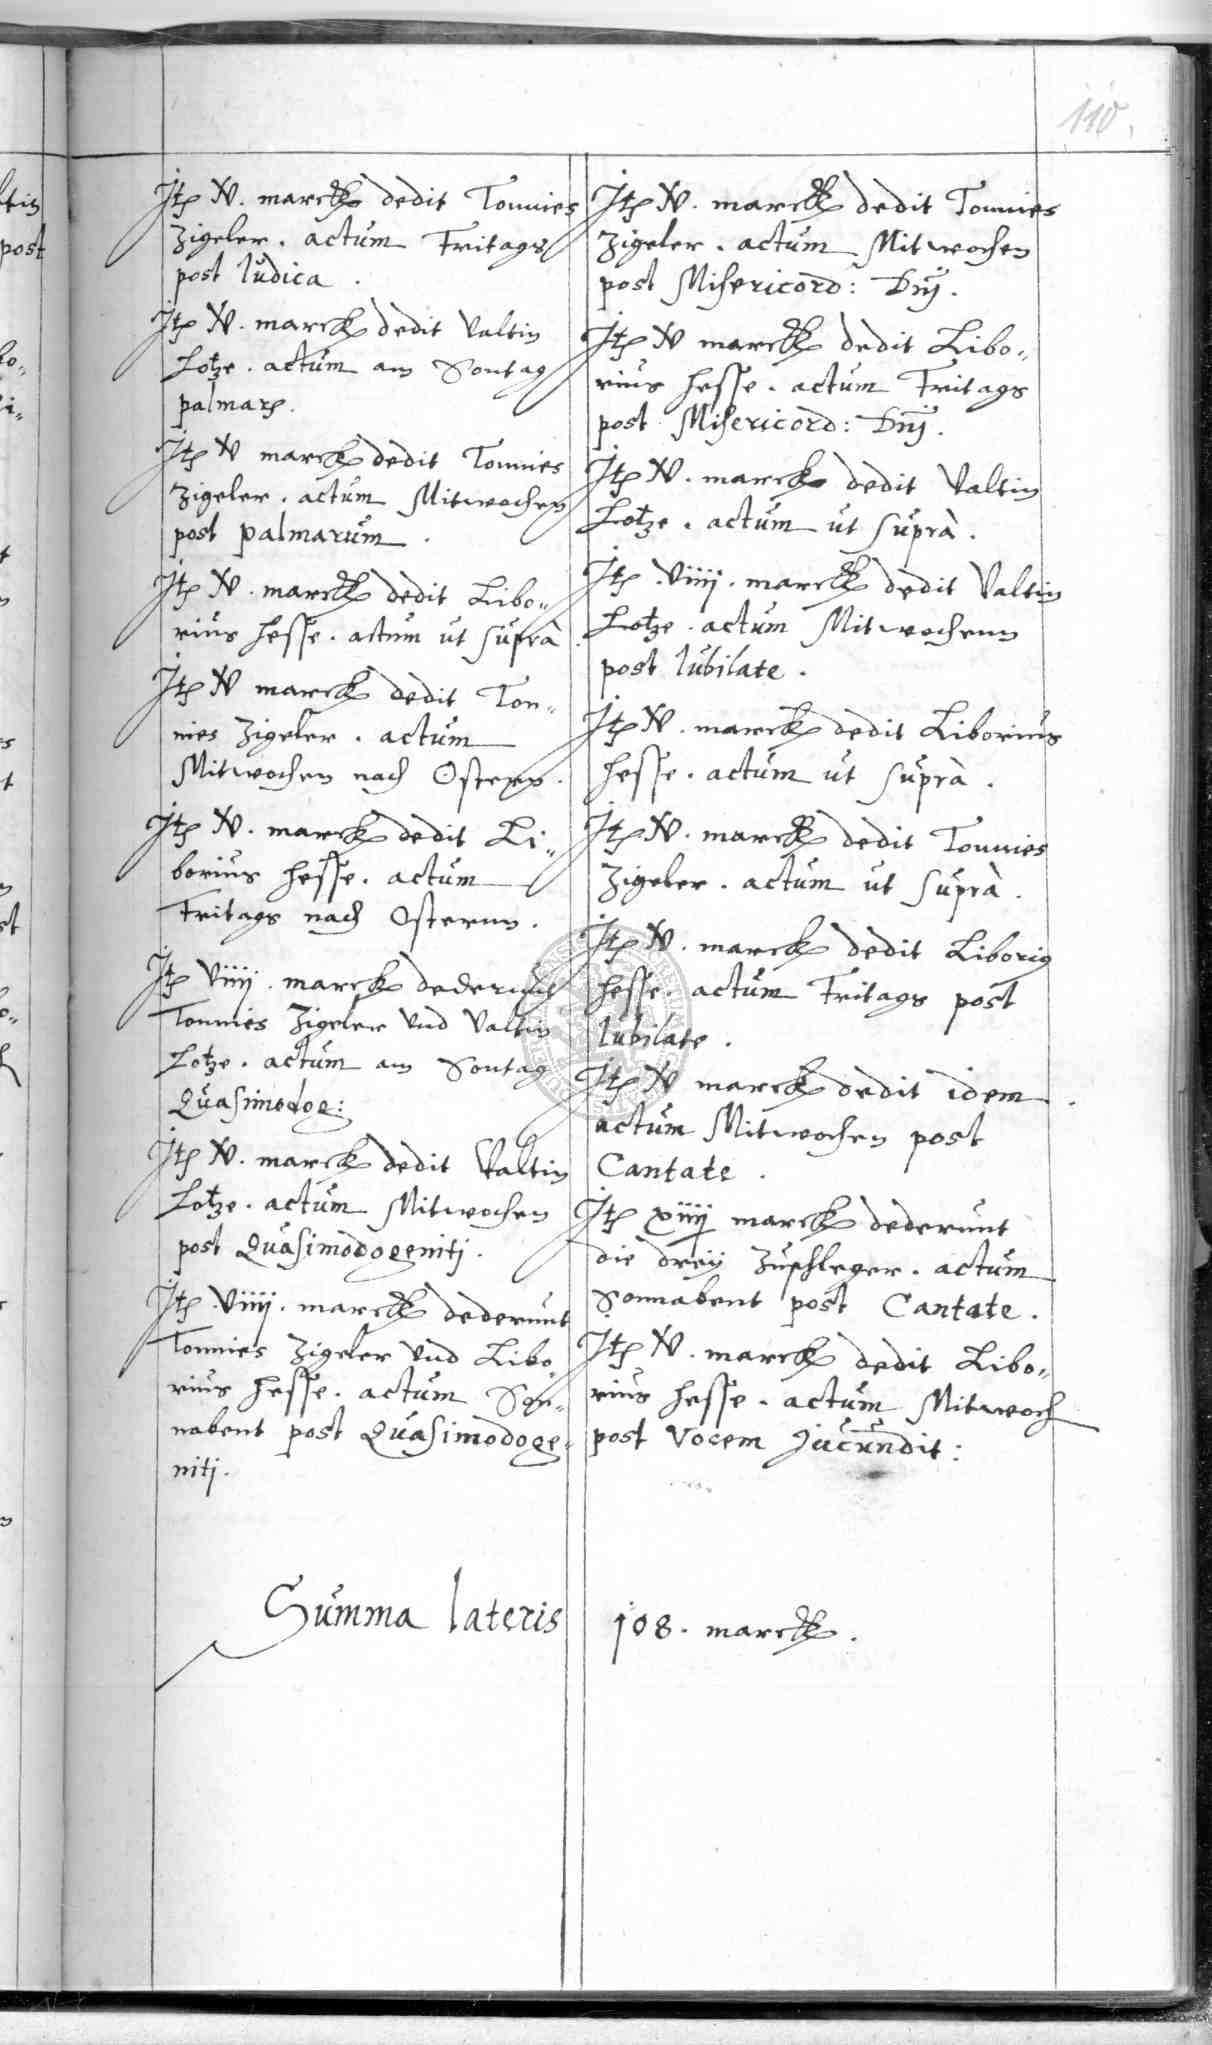 110.
Itꝫ V. marck dedit Tonnies
Zigeler. actum Fritags
post Iudica.
Itꝫ V. marck dedit Valtin
Lotze. actum am Sontag
palmarꝫ.
Itꝫ V marck dedit Tonnies
Zigeler. actum Mitwochen
post palmarum.
Itꝫ V. marck dedit Libo„
rius Hesse. actum ut supra
Itꝫ V marck dedit Ton„
nies Zigeler. actum
Mitwochen nach Ostern.
Itꝫ V. marck dedit Li„
borius Hesse. actum
Fritags nach Osternn.
Itꝫ Viiij. marck dederunt
Tonnies Zigeler und Valtin
Lotze. actum am Sontag
Quasimodog:
Itꝫ V. marck dedit Valtin
Lotze. actum Mitwochen
post Quasimodogenitj.
Itꝫ Viiij. marck dederunt
Tonnies Zigeler und Libo
rius Hesse. actum Son„
nabent post Quasimodoge„
nitj.
Itꝫ V. marck dedit Tonnies
Zigeler. actum Mitwochen
post Misericord: Dnj.
Itꝫ V marck dedit Libo„
rius Hesse. actum Fritags
post Misericord: Dnj.
Itꝫ V. marck dedit Valtin
Lotze. actum ut suprà.
Itꝫ Viiij. marck dedit Valtin
Lotze. actum Mitwochenn
post Iubilate.
Itꝫ V. marck dedit Liborius
Hesse. actum ut suprà.
Itꝫ V. marck dedit Tonnies
Zigeler. actum ut suprà.
Itꝫ V. marck dedit Liborius
Hesse. actum Fritags post
Iubilate.
Itꝫ V marck dedit idem.
actum Mitwochen post
Cantate.
Itꝫ xiiij marck dederunt
die dreij Zuschleger. actum
Sonnabent post Cantate.
Itꝫ V. marck dedit Libo„
rius Hesse. actum Mitwoch
post Vocem Jucundit:
Summa lateris 108. marck.